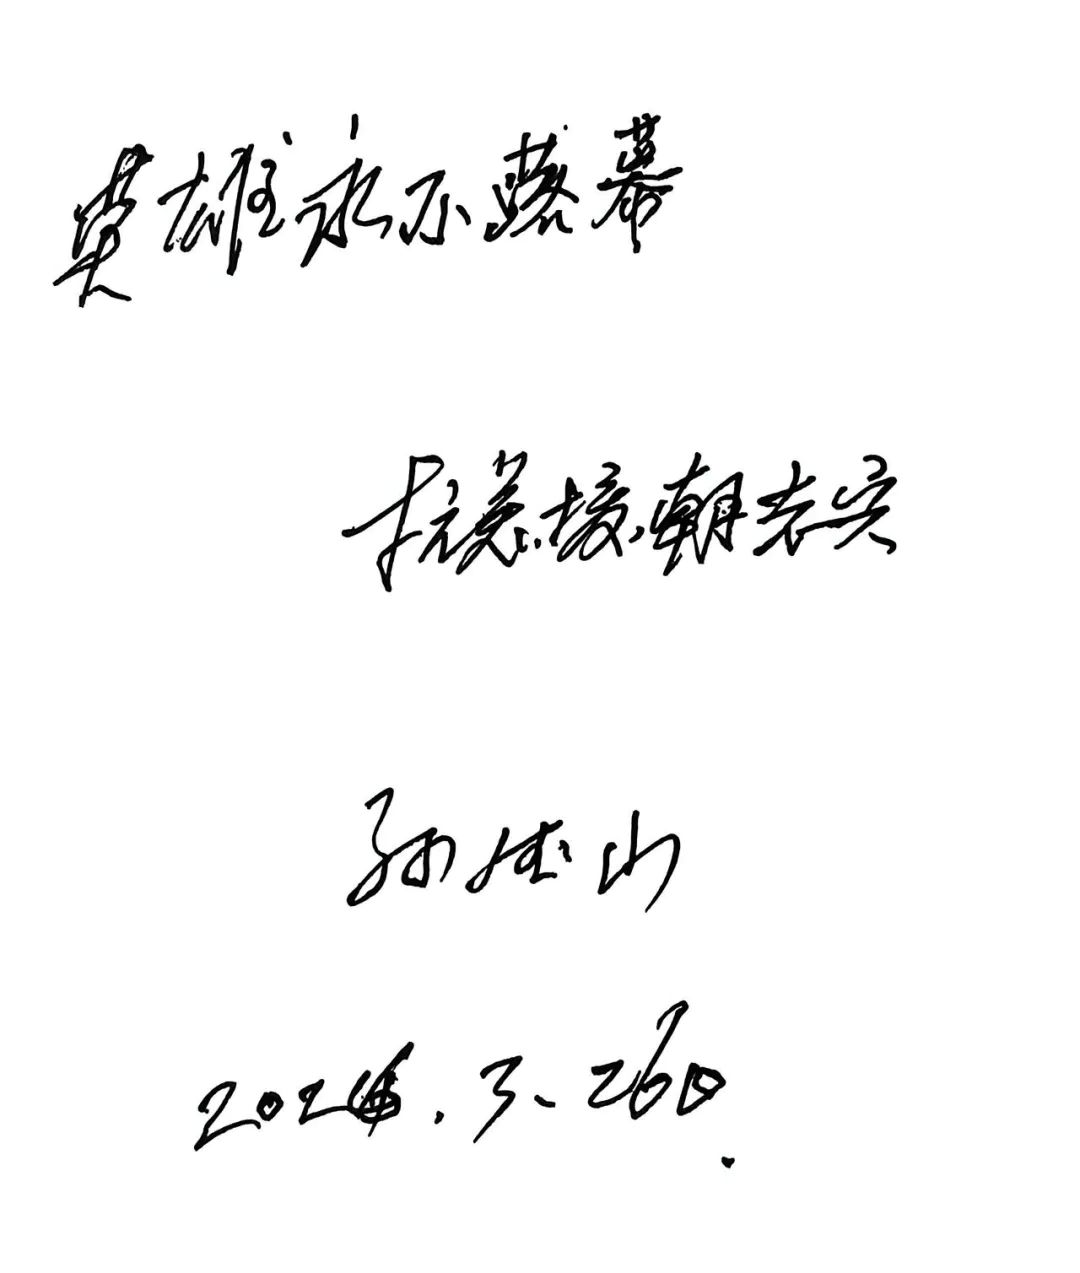 英雄永不落幕
抗美援朝老兵
孙佳山
2024.3.26日.